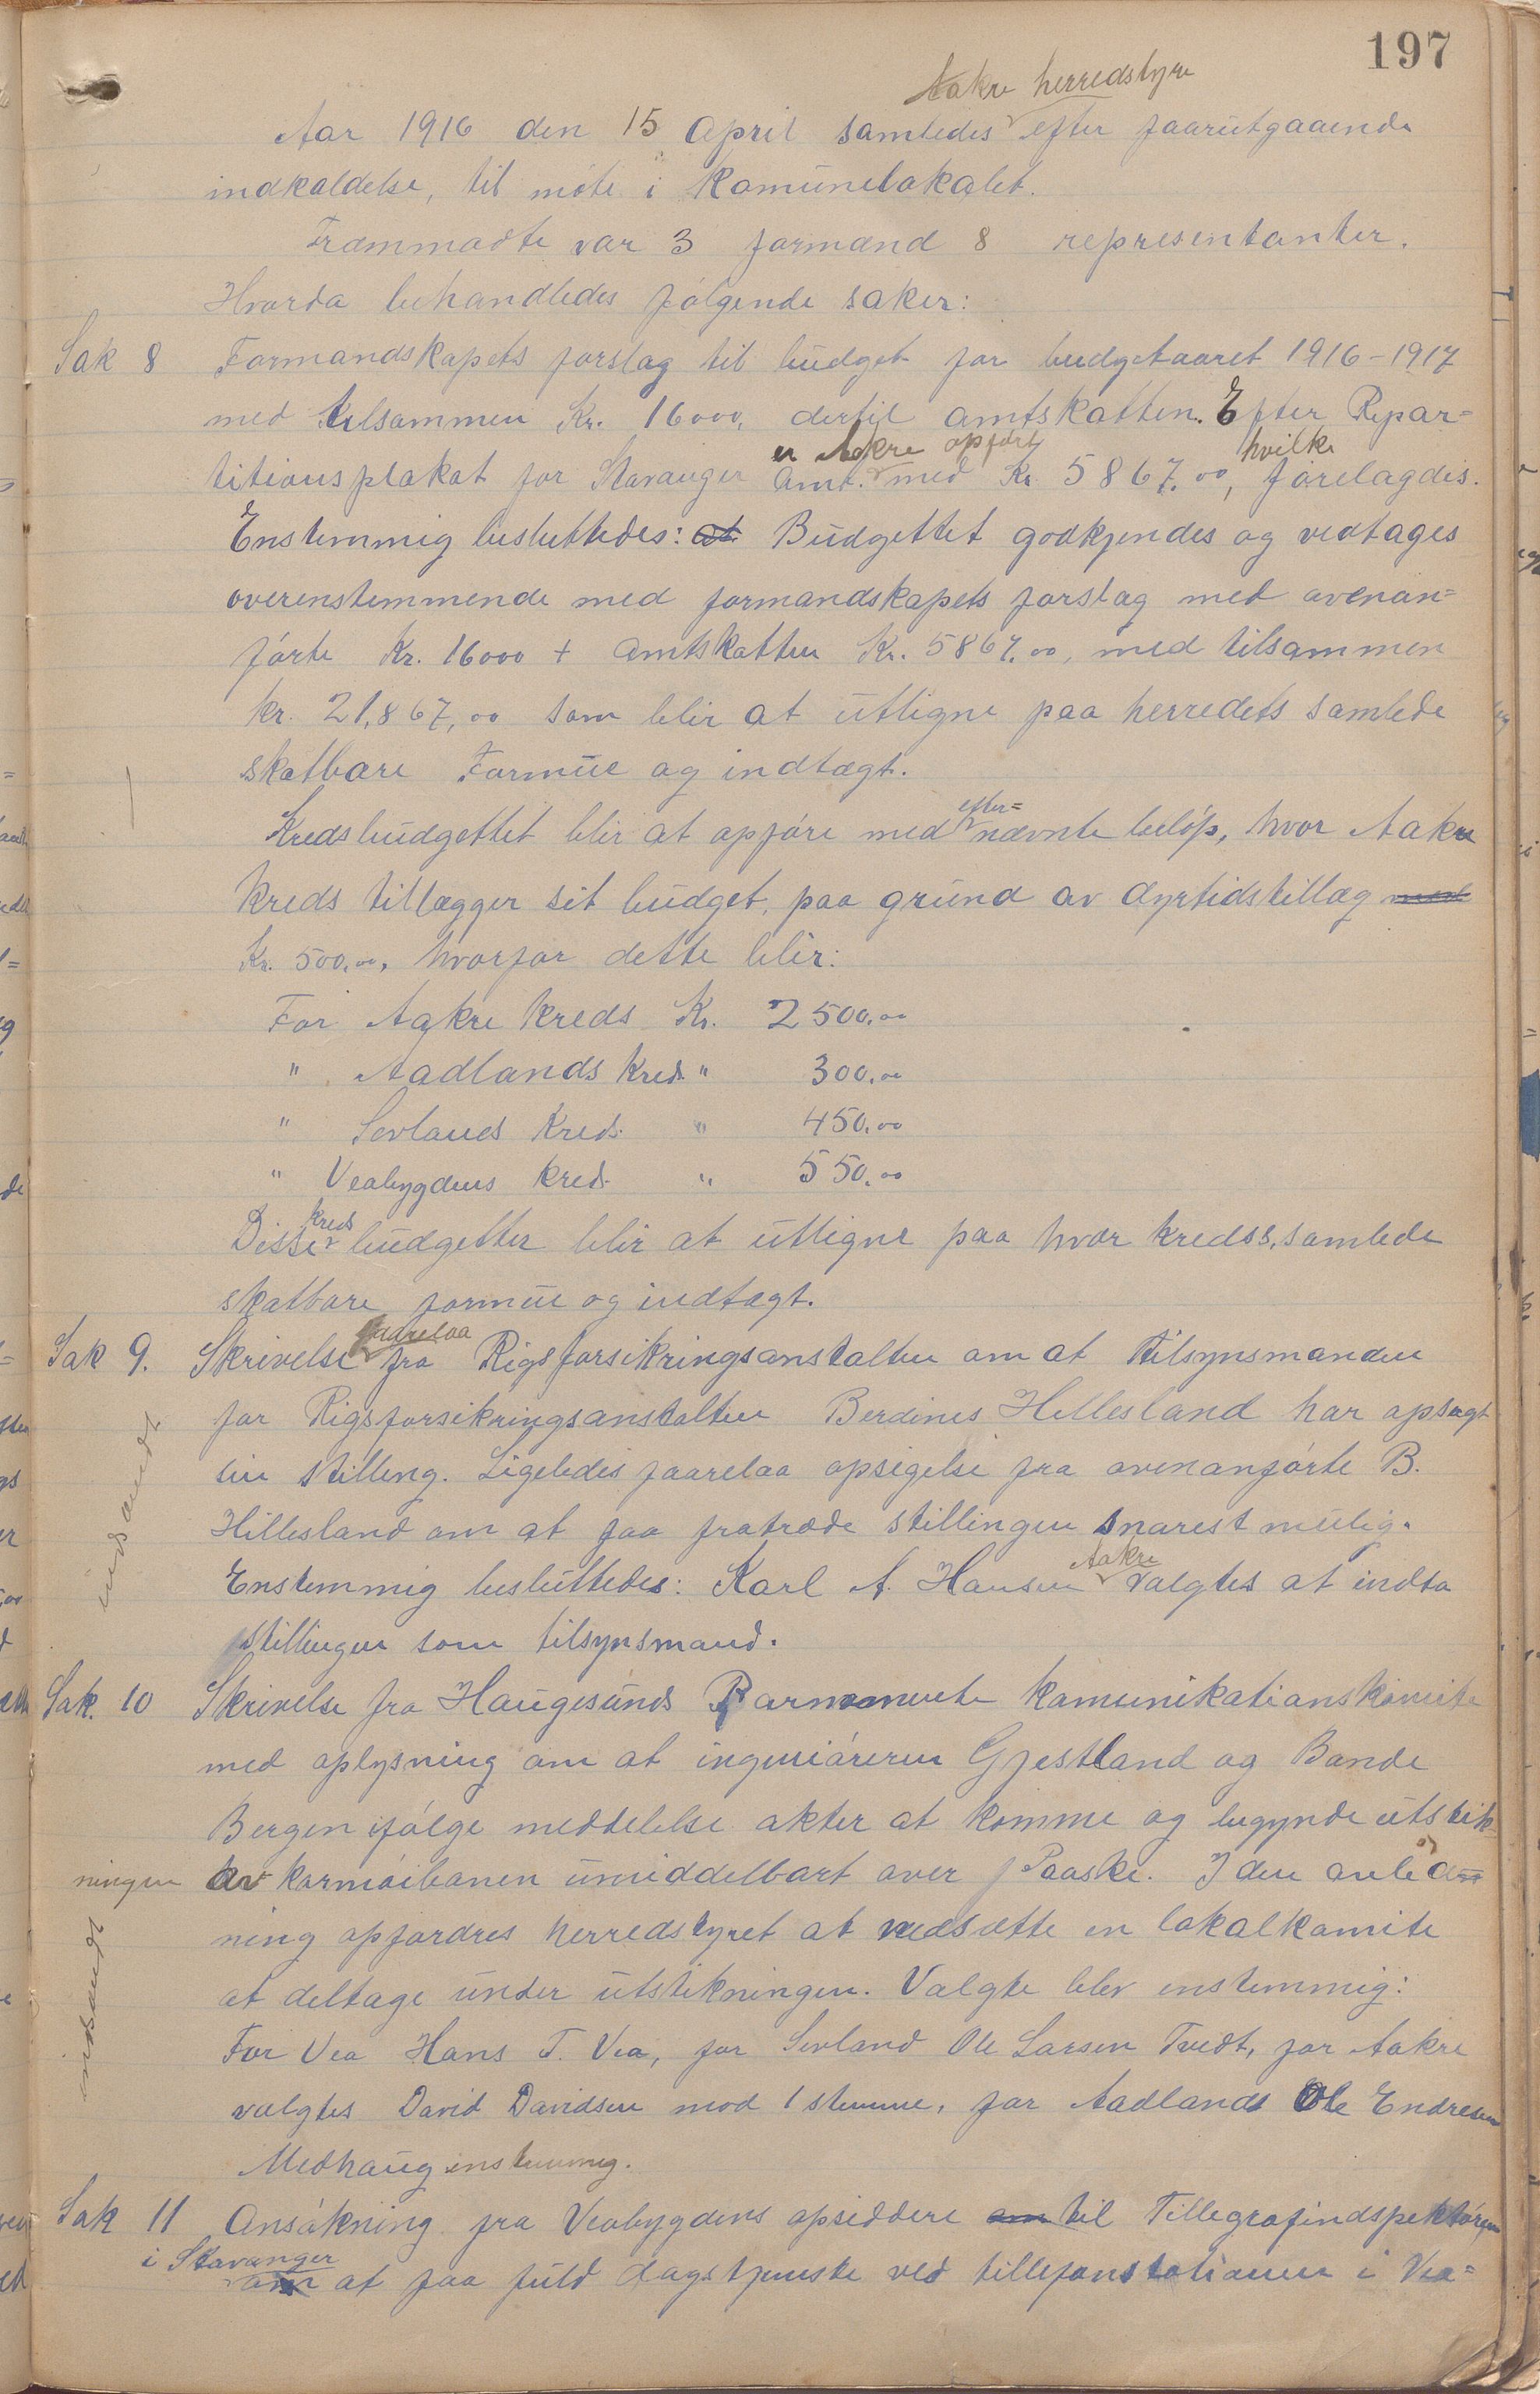 197
Aakre herredstyre
Aar 1916 den 15 April samledes efter faarutgaaende
indkaldelse, til møte i Komunelokalet.
Frammødte var 3 formænd 8 representanter.
Hvorda behandledes følgende saker:
Sak 8 Formandskapets forslag til budget for budgetaaret 1916-1917
med tilsammen Kr. 16000, dertil amtskatten. Efter Repar=
er Aakre opført hvilke
titionsplakat for Stavanger Amt. med Kr. 5867.00, forelagdes.
Enstemmig besluttedes: at Budgettet godkjendes og vedtages
overenstemmende med formandskapets forslag med ovenan=
førte Kr. 16000 + Amtskatten Kr. 5867.00, med tilsammen
kr. 21,867,00 som blir at utligne paa herredets samlede
skatbare Formue og indtægt.
efter=
Kredsbudgettet blir at opføre med nævnte beløp, hvor Aakre
Kreds tillægger sit budget, paa grund av dyrtidstillæg med
Kr. 500,00, hvorfor dette blir:
For Aakre Kreds Kr. 2500,00
" Aadlands Kreds " 300,00
" Sevlands Kreds " 450,00
" Veabygdens Kreds " 550,00
kreds
Disse budgetter blir at utligne paa hver kredss, samlede
skatbare formue og indtægt.
faarelaa
Sak 9. Skrivelse fra Rigsforsikringsanstalten om at Tilsynsmanden
for Rigsforsikringsanstalten Berdines Hillesland har opsagt
sin stilling. Ligeledes faarelaa opsigelse fra ovenanførte B.
Hillesland om at faa fratræde stillingen snarest mulig.
Aakre
Enstemmig besluttedes: Karl A. Hansen valgtes at indta
stillingen som tilsynsmand.
utsendt
Sak. 10 Skrivelse fra Haugesunds Parmanente Komunikationskomite
med oplysning om at ingeniøreren Gjestland og Bonde
Bergen ifølge meddelelse akter at komme og begynde utstik-
ningen av Karmøibanen umiddelbart over Paaske. I den anled
ning opfordres herredstyret at nedsætte en lokalkomite
at deltage under utstikningen. Valgte blev enstemmig:
utsendt
For Vea Hans T. Vea, for Sevland Ole Larsen Tvedt, for Aakre
valgtes David Davidsen mod 1 stemme, for Aadlands Ole Endresen
Medhaug enstemmig.
Sak 11 Ansøkning fra Veabygdens opsiddere om til Tillegrafindspektøren
i Stavanger
om at faa fuld dagstjeneste ved tillefonstationen i Vea=